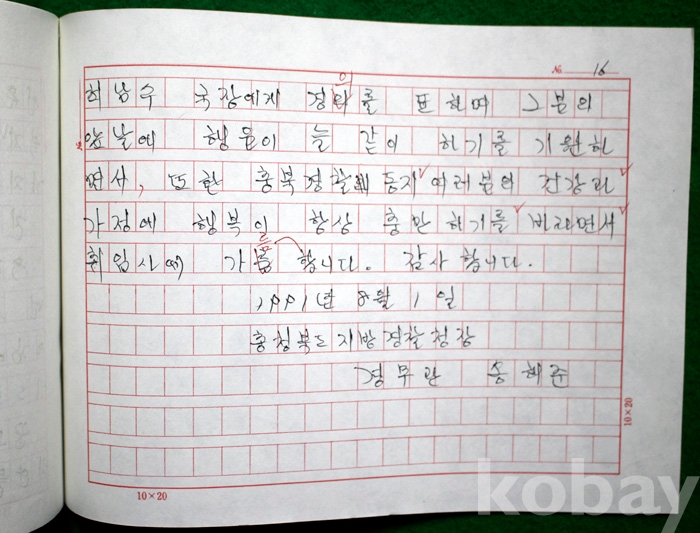 № 16
허남수 국장에게 경의를 표하며 그분의
앞날에 행운이 늘 같이 하기를 기원하
면서, 또한 충북경찰 동지 여러분의 건강과
가정에 행복이 항상 충만하기를 바라면서
취임사에 가름 합니다. 감사합니다.
1991년 8월 1일
충청북도지방경찰청장
경무관 송해준
10×20
10×20
kobay